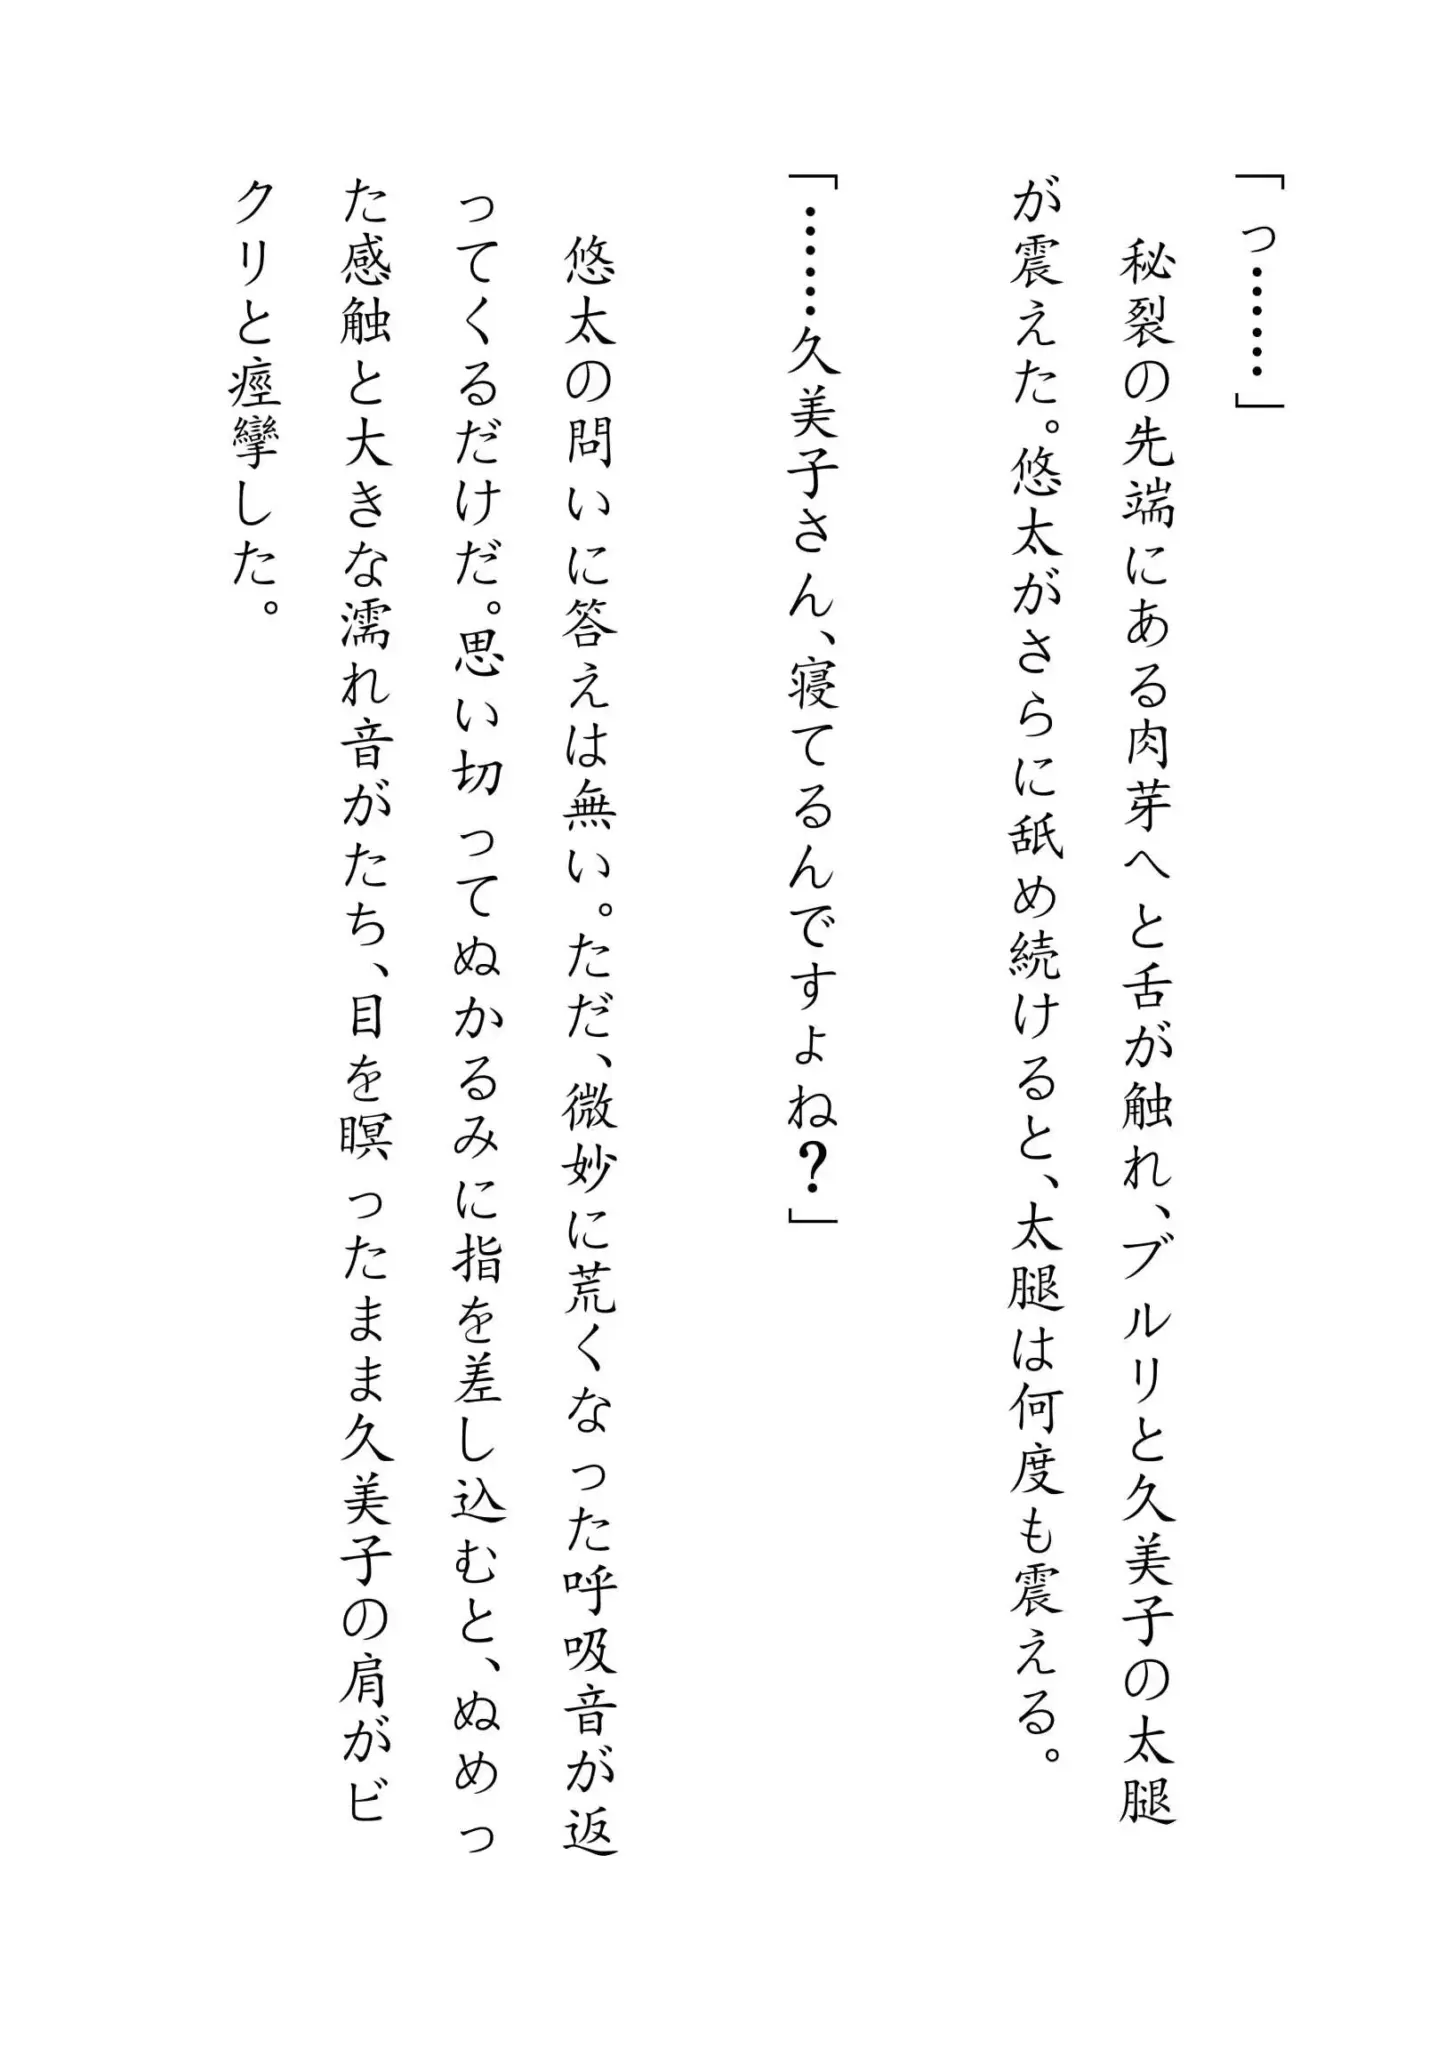 「っ……」
秘裂の先端にある肉芽へと舌が触れ、ブルリと久美子の太腿
が震えた。悠太がさらに舐め続けると、太腿は何度も震える。
「……久美子さん、寝てるんですよね？」
悠太の問いに答えは無い。ただ、微妙に荒くなった呼吸音が返
ってくるだけだ。思い切ってぬかるみに指を差し込むと、ぬめっ
た感触と大きな濡れ音がたち、目を瞑ったまま久美子の肩がビ
クリと痙攣した。